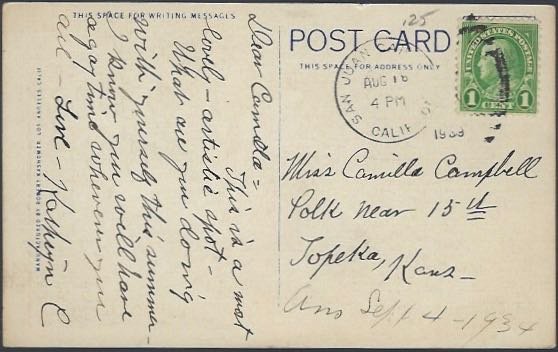 THIS SPACE FOR WRITING MESSAGES
POST CARD
THIS SPACE FOR ADDRESS ONLY
125
UNITED STATES POSTAGE
1 CENT 1
SAN JUAN
AUG 16
4 PM
CALIF
1933
Dear Camilla =
This is a most
lovely - artistic spot -
What are you doing
with yourself this summer -
I know you will have
a gay time wherever you
are - Love - Kathryn C
Miss Camilla Campbell
Polk near 15th
Topeka, Kans -
Ans Sept 4 - 1934
MANUFACTURED BY ROBERT KASHOWER, LOS ANGELES, CALIF.